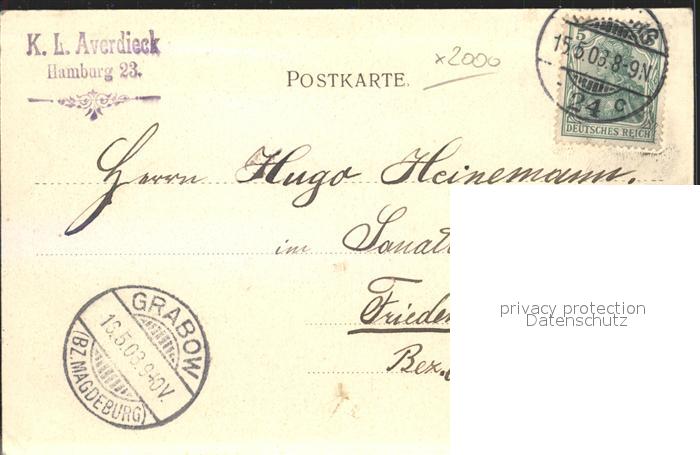 K. L. Averdieck
Hamburg 23.
x2000
POSTKARTE.
5
15.5.03.8-9N
24 c
DEUTSCHES REICH
Herrn Hugo Heinemann.
im Sanat
Frieden
Bez.
privacy protection
Datenschutz
GRABOW
16.5.03.9-10V.
(BZ. MAGDEBURG)